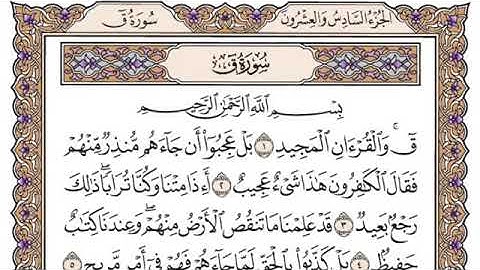 سُورَةُ قٓ
الجُزْءُ السَّادِسُ وَالعِشْرُونَ
سُورَةُ قٓ
بِسْمِ اللَّهِ الرَّحْمَٰنِ الرَّحِيمِ
قٓۚ وَالْقُرْءَانِ الْمَجِيدِ ١ بَلْ عَجِبُوٓا۟ أَن جَآءَهُم مُّنذِرٌ مِّنْهُمْ
فَقَالَ الْكَٰفِرُونَ هَٰذَا شَىْءٌ عَجِيبٌ ٢ أَءِذَا مِتْنَا وَكُنَّا تُرَابًاۖ ذَٰلِكَ
رَجْعٌۢ بَعِيدٌ ٣ قَدْ عَلِمْنَا مَا تَنقُصُ الْأَرْضُ مِنْهُمْۖ وَعِندَنَا كِتَٰبٌ
حَفِيظٌۢ ٤ بَلْ كَذَّبُوا۟ بِالْحَقِّ لَمَّا جَآءَهُمْ فَهُمْ فِىٓ أَمْرٍ مَّرِيجٍ ٥